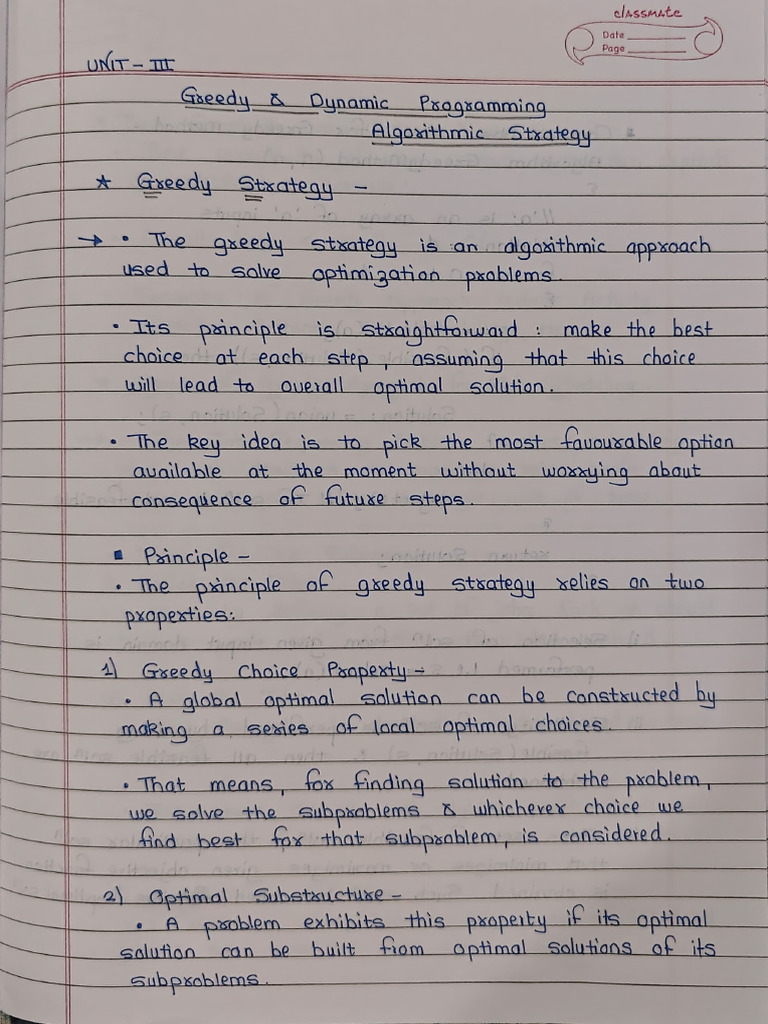 classmate
Date
Page
UNIT - III
Greedy & Dynamic Programming
Algorithmic Strategy
* Greedy Strategy -
→ • The greedy strategy is an algorithmic approach
used to solve optimization problems.
• Its principle is straightforward : make the best
choice at each step, assuming that this choice
will lead to overall optimal solution.
• The key idea is to pick the most favourable option
available at the moment without worrying about
consequence of future steps.
▪ Principle -
• The principle of greedy strategy relies on two
properties:
1) Greedy Choice Property -
• A global optimal solution can be constructed by
making a series of local optimal choices.
• That means, for finding solution to the problem,
we solve the subproblems & whichever choice we
find best for that subproblem, is considered.
2) Optimal Substructure -
• A problem exhibits this property if its optimal
solution can be built from optimal solutions of its
subproblems.